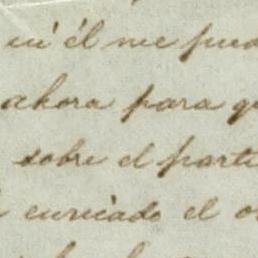 él me pued
ahora para q
sobre el parti
enviado el o